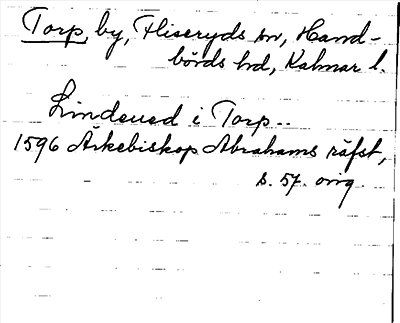 Torp, by, Fliseryds sn, Hand-
börds hd, Kalmar l.
Lindeued i Torp..
1596 Ärkebiskop Abrahams räfst,
s. 57. orig.